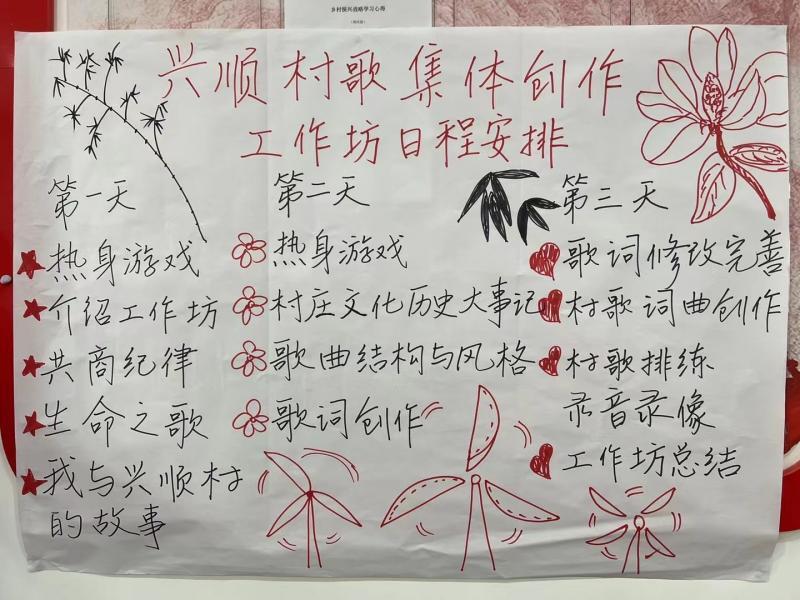 乡村振兴战略学习心得
兴顺村歌集体创作
工作坊日程安排
第一天
热身游戏
介绍工作坊
共商纪律
生命之歌
我与兴顺村
的故事
第二天
热身游戏
村庄文化历史大事记
歌曲结构与风格
歌词创作
第三天
歌词修改完善
村歌词曲创作
村歌排练
录音录像
工作坊总结